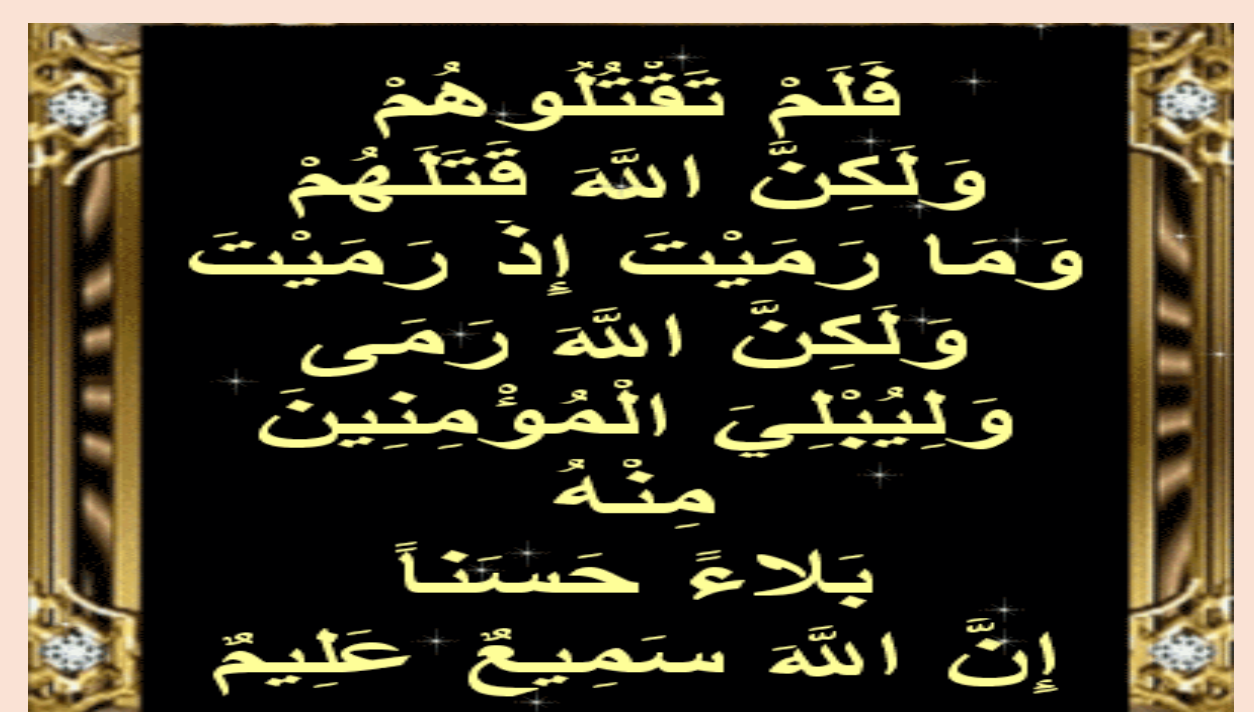 فَلَمْ تَقْتُلُوهُمْ
وَلَكِنَّ اللَّهَ قَتَلَهُمْ
وَمَا رَمَيْتَ إِذْ رَمَيْتَ
وَلَكِنَّ اللَّهَ رَمَى
وَلِيُبْلِيَ الْمُؤْمِنِينَ
مِنْهُ
بَلاءً حَسَناً
إِنَّ اللَّهَ سَمِيعٌ عَلِيمٌ